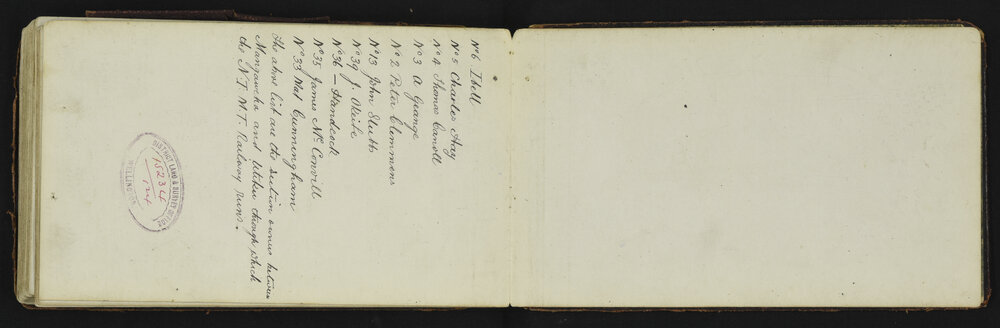 No 6 Ibell
No 5 Charles Hay
No 4 Thomas Canoll
No 3 A Grange
No 2 Peter Clemmens
No 13 John Slutt
No 39 J. Okeife
No 36 — Handcock
No 35 James Mc Convill
No 33 Mat Cunningham
The above list are the section owners between
Mangaweka and Utiku through which
the N.I.M.T. Railway runs.
DISTRICT LAND & SURVEY OFFICE
15234
124
WELLINGTON